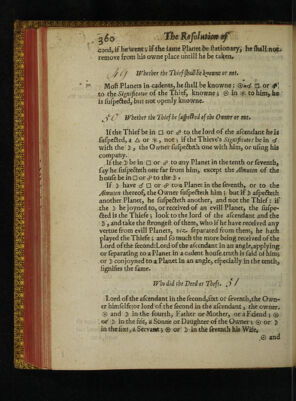 360 The Resolution of
cond, if he went: if the same Planet be stationary, he shall not
remove from his owne place untill he be taken.
49 Whether the Thief shall be knowne or not.
Most Planets in cadents, he shall be knowne: ☉ in ☌ □ or ☍
to the Significator of the Thief, knowne; ☉ in ✶ to him, he
is suspected, but not openly knowne.
50 Whether the Thief be suspected of the Owner or not.
If the Thief be in □ or ☍ to the lord of the ascendant he is
suspected, a △ or ✶, not; if the Thieve's Significator be in ☌
with the ☽, the Owner suspecteth one with him, or using his
company.
If the ☽ be in □ or ☍ to any Planet in the tenth or seventh,
say he suspecteth one far from him, except the Almuten of the
house be in □ or ☍ to the ☽.
If ☽ have ☌ □ or ☍ to a Planet in the seventh, or to the
Almuten thereof, the Owner suspecteth him; but if ☽ aspecteth
another Planet, he suspecteth another, and not the Thief: if
the ☽ be joyned to, or received of an evill Planet, the suspe-
cted is the Thief; look to the lord of the ascendant and the
☽, and take the strongest of them, who if he have received any
vertue from evill Planets, viz. separated from them, he hath
played the Thief; and so much the more being received of the
Lord of the second. Lord of the ascendant in an angle, applying
or separating to a Planet in a cadent house, truth is said of him;
or ☽ conjoyned to a Planet in an angle, especially in the tenth,
signifies the same.
Who did the Deed or Theft. 51
Lord of the ascendant in the second, sixt or seventh, the Own-
er himselfe; or lord of the second in the ascendant, the owner.
☉ and ☽ in the fourth, Father or Mother, or a Friend; ☉
or ☽ in the fift, a Sonne or Daughter of the Owner: ☉ or ☽
in the sixt, a Servant; ☉ or ☽ in the seventh his Wife.
☉ and